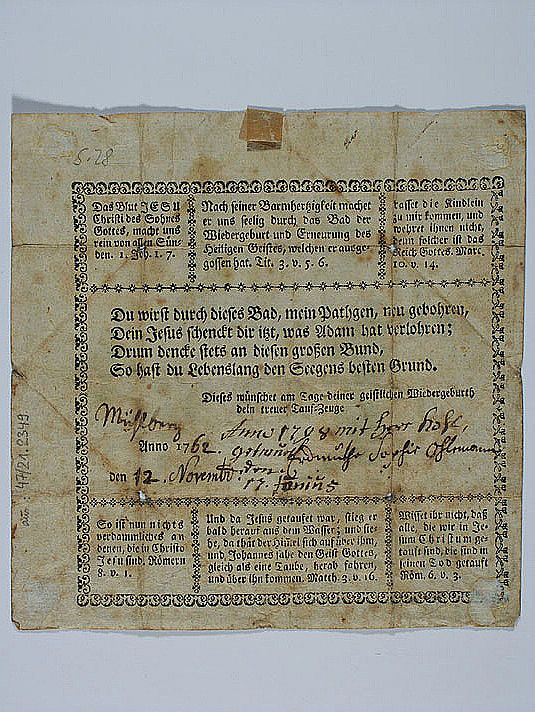 5.28
Das Blut JESU
Christi des Sohnes
Gottes, macht uns
rein von allen Sün-
den. 1. Joh. 1. 7.
Nach seiner Barmhertzigkeit machet
er uns seelig durch das Bad der
Wiedergeburt und Erneurung des
Heiligen Geistes, welchen er ausge-
gossen hat. Tit. 3. v. 5. 6.
Lasset die Kindlein
zu mir kommen, und
wehret ihnen nicht,
denn solcher ist das
Reich Gottes. Marc.
10. v. 14.
Du wirst durch dieses Bad, mein Pathgen, neu gebohren,
Dein Jesus schenckt dir itzt, was Adam hat verlohren;
Drum dencke stets an diesen großen Bund,
So hast du Lebenslang den Seegens besten Grund.
Dieses wünschet am Tage deiner geistlichen Wiedergeburth
dein treuer Tauf-Zeuge
Mühlberg
Anno 1798 mit Herr
Anno 1762. Sophie
den 12. Novembr.
17. Junius
So ist nun nichts
verdammliches an
denen, die in Christo
Jesu sind, Römern
8. v. 1.
Und da Jesus getaufet war, stieg er
bald herauf aus dem Wasser; und sie-
he, da that der Himel sich auf über ihm,
und Johannes sahe den Geist Gottes,
gleich als eine Taube, herab fahren,
und über ihn kommen. Matth. 3. v. 16.
Wisset ihr nicht, daß
alle, die wir in Je-
sum Christum ge-
tauft sind, die sind in
seinen Tod getauft
Röm. 6. v. 3.
47/21.2349